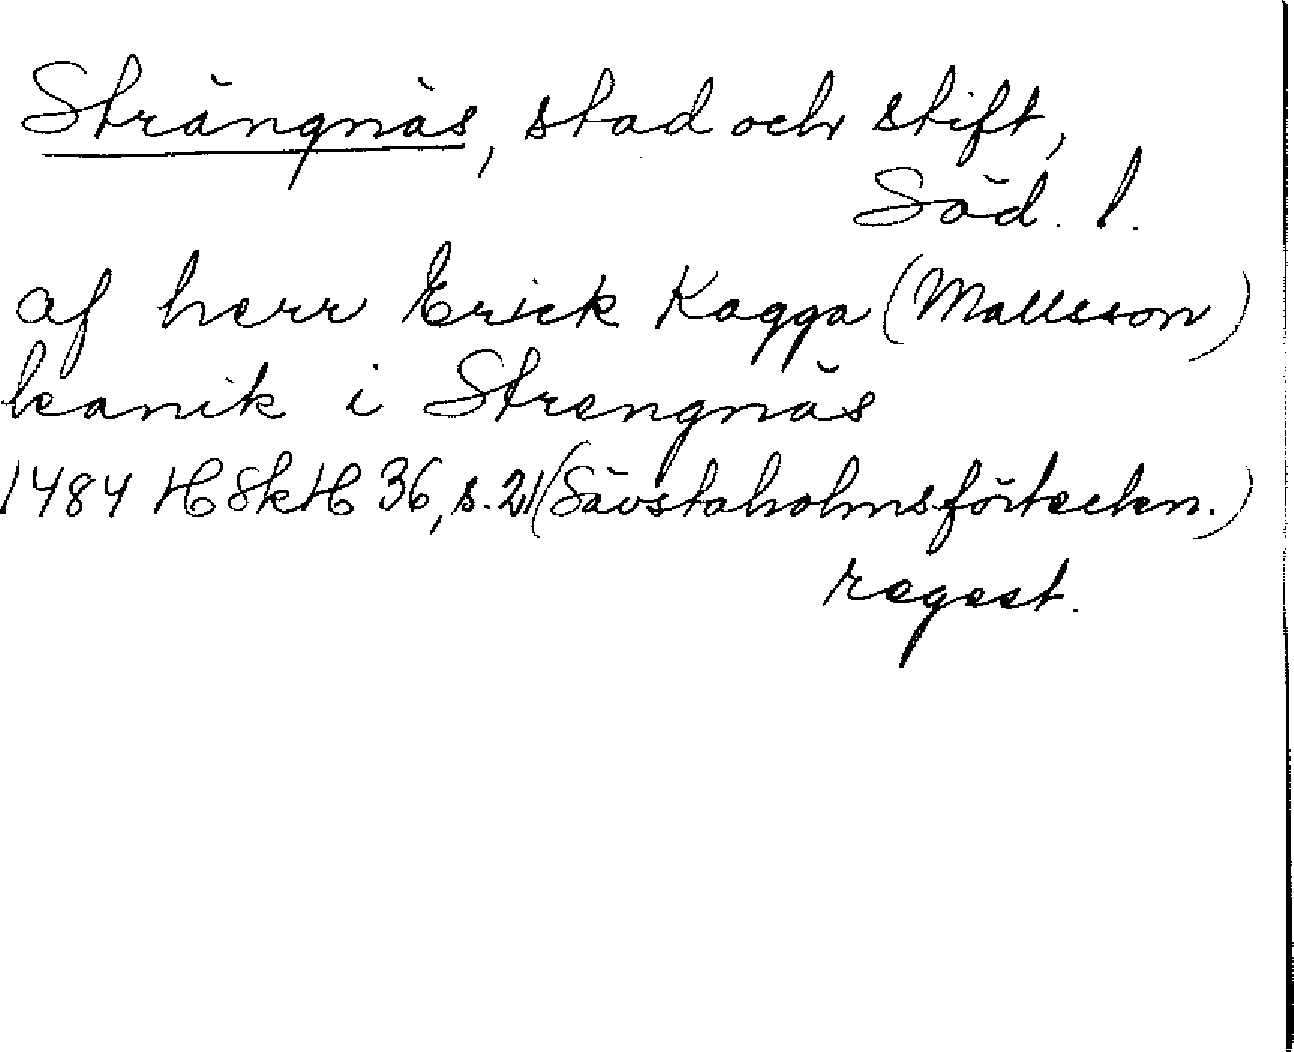 Strängnäs, stad och stift,
Söd. l.
af herr Erick Kagga (Matteson)
kanik i Strengnäs
1484 HSkH 36, s. 21 (Sävstaholmsförteckn.)
regest.